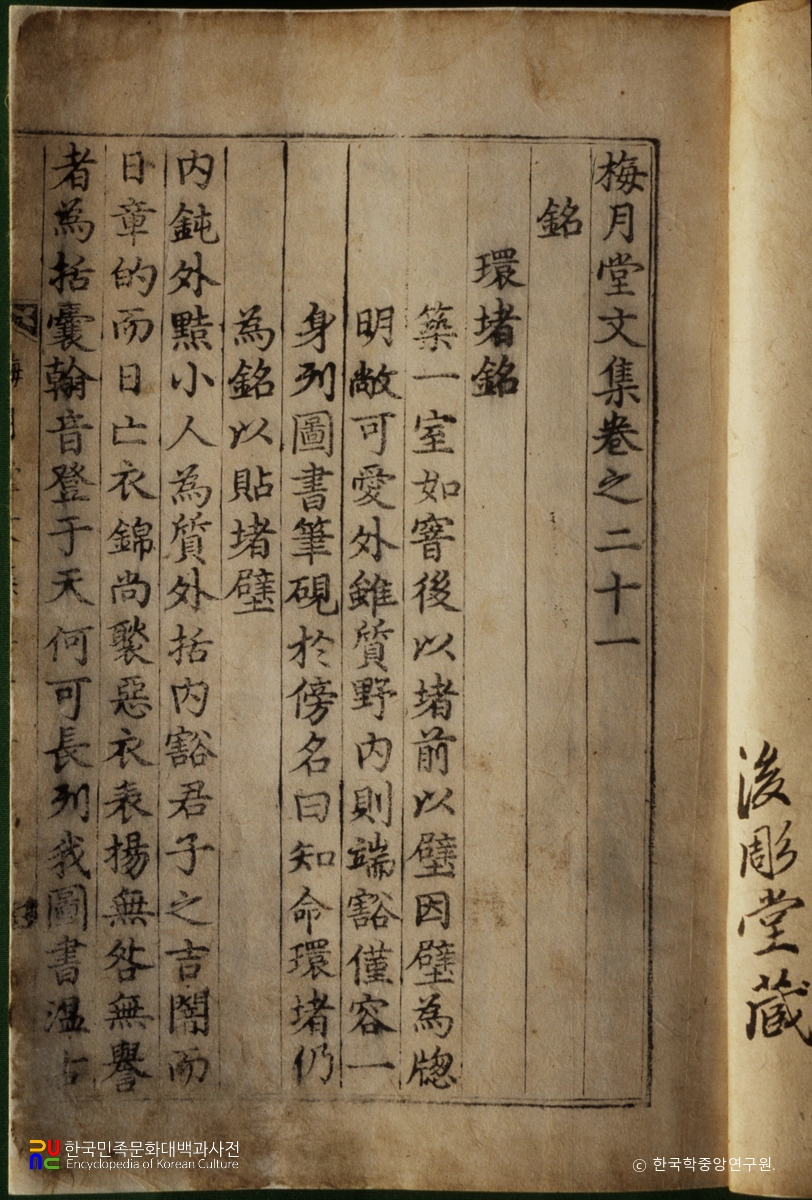 後彫堂蔵
梅月堂文集卷之二十一
銘
環堵銘
築一室如窨後以堵前以壁因壁為牕
明敞可愛外雖質野內則端豁僅容一
身列圖書筆硯於傍名曰知命環堵仍
為銘以貼堵壁
內鈍外黠小人為質外括內豁君子之吉闇而
日章的而日亡衣錦尚褧惡衣表揚無咎無譽
者為括囊翰音登于天何可長列我圖書溫古
한국민족문화대백과사전
Encyclopedia of Korean Culture
© 한국학중앙연구원.